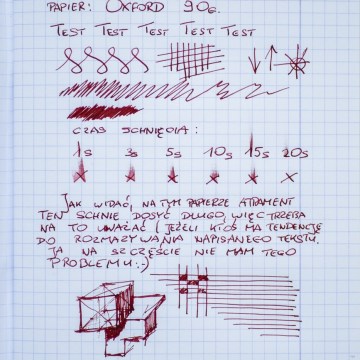 PAPIER: OXFORD 90g.
TEST TEST TEST TEST TEST
CZAS SCHNIĘCIA:
1s 3s 5s 10s 15s 20s
JAK WIDAĆ, NA TYM PAPIERZE ATRAMENT
TEN SCHNIE DOSYĆ DŁUGO, WIĘC TRZEBA
NA TO UWAŻAĆ (JEŻELI KTOŚ MA TENDENCJE
DO ROZMAZYWANIA NAPISANEGO TEKSTU.
JA NA SZCZĘŚCIE NIE MAM TEGO
PROBLEMU :-)